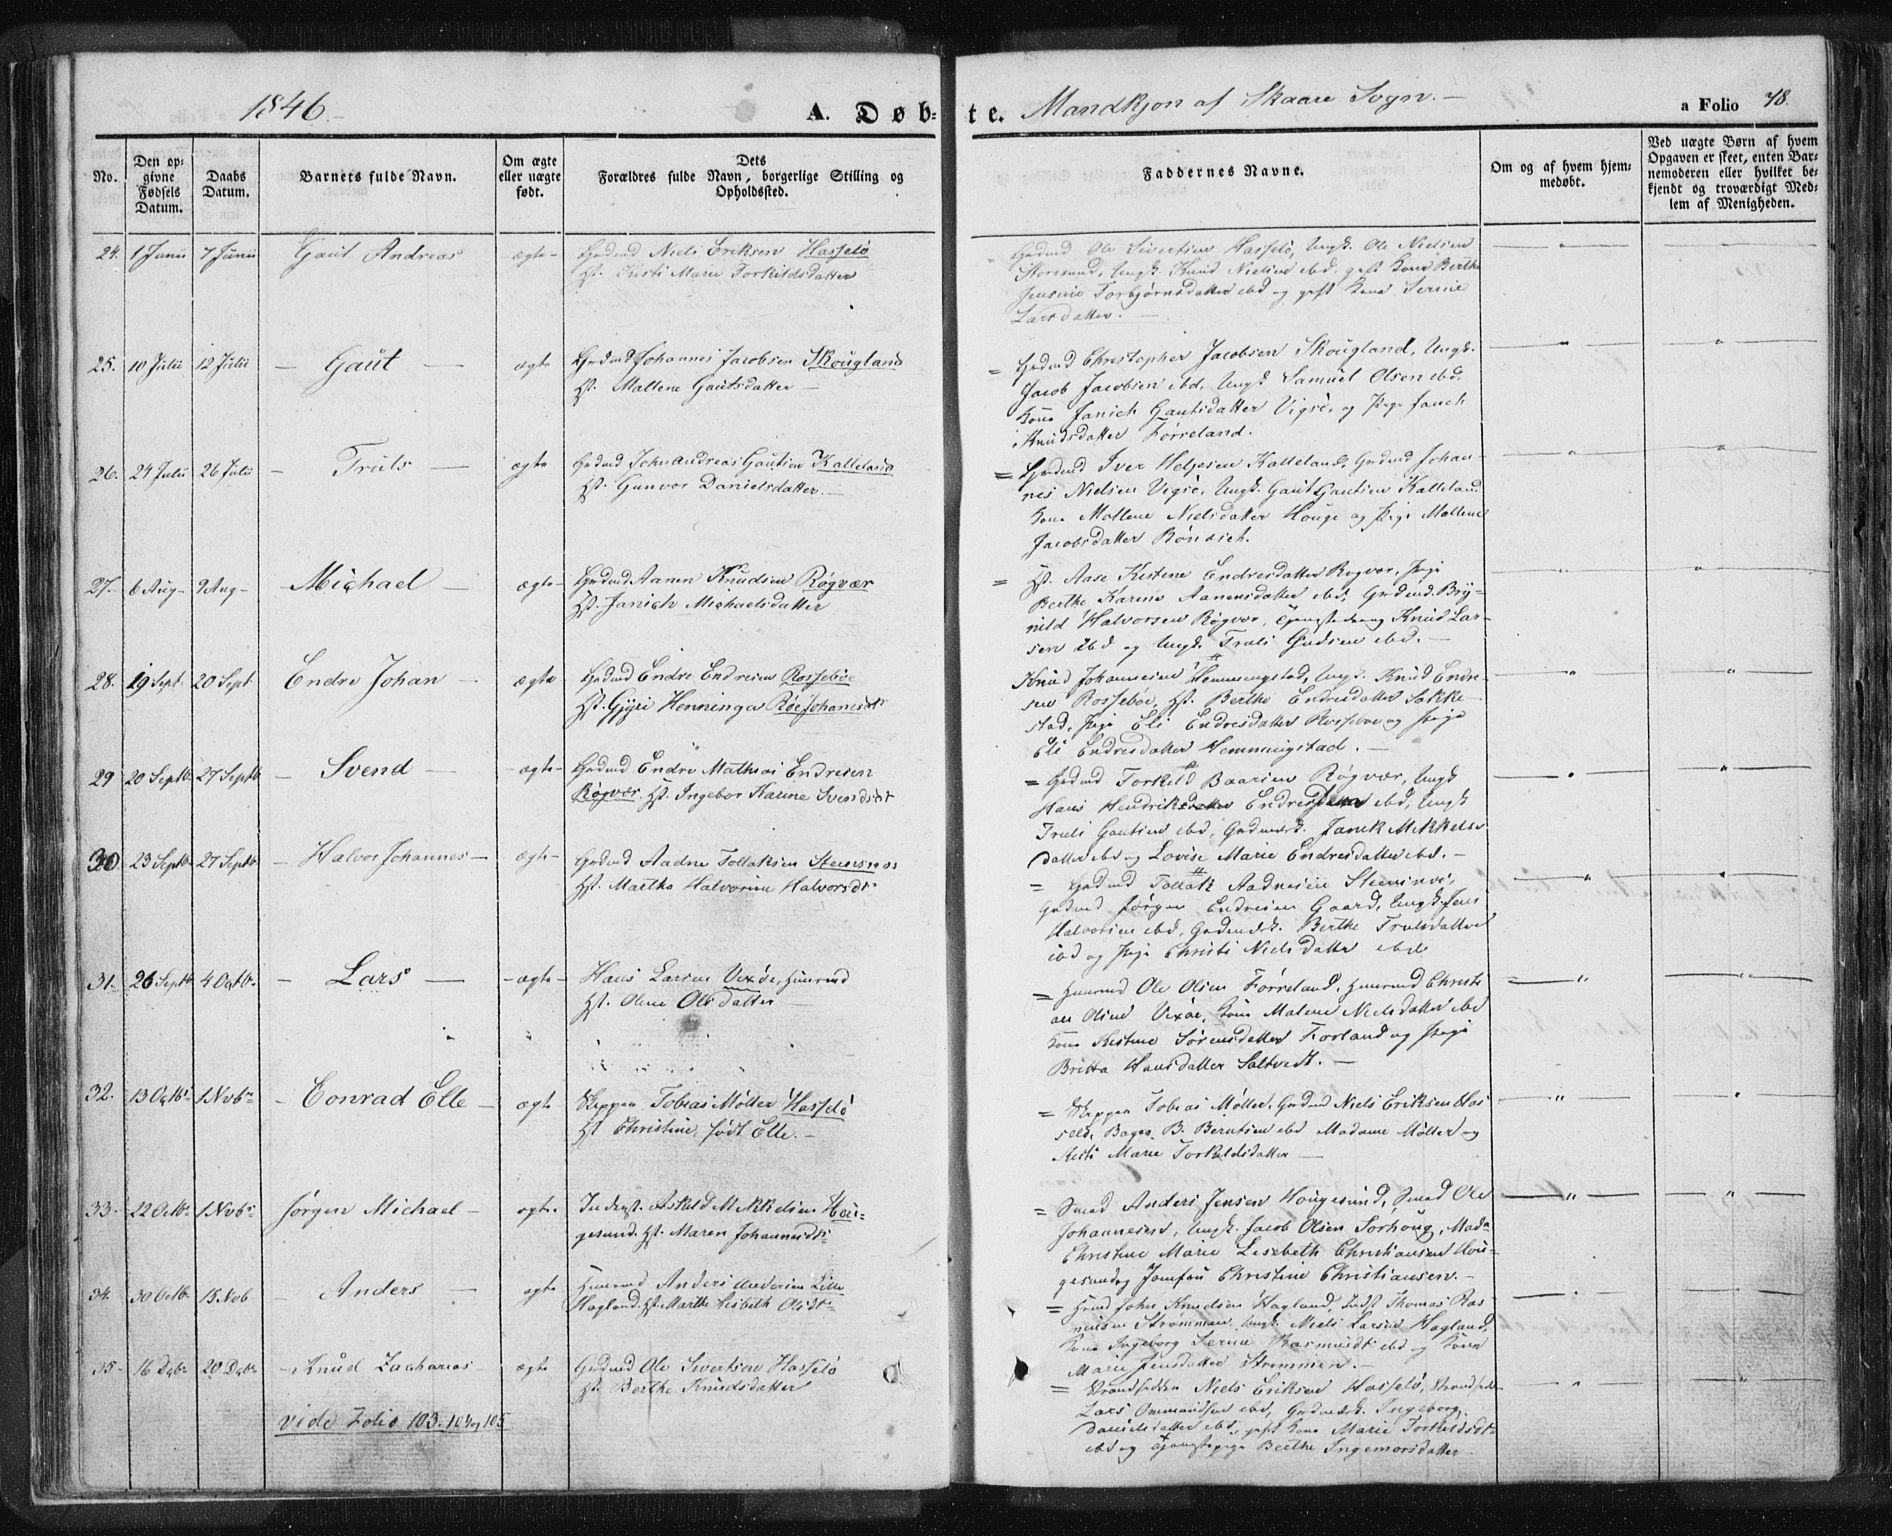 1846.
A. Døb-
te. Mandkjøn af Skaare Sogn.
a Folio 78.
No.
Den op-
givne
Fødsels
Datum.
Daabs
Datum.
Barnets fulde Navn.
Om ægte
eller uægte
født.
Dets
Forældres fulde Navn, borgerlige Stilling og
Opholdssted.
Faddernes Navne.
Om og af hvem hjem-
medøbt.
Ved uægte Børn af hvem
Opgaven er skeet, enten Bar-
nemoderen eller hvilket be-
kjendt og troværdigt Med-
lem af Menigheden.
24. 1 Junii 7 Junii Gaut Andreas ægte
Grdmd Niels Eriksen Hasselö
Hst. Kisti Marie Torkildsdatter
Grdmd Ole Sivertsen Hasselö, Ungk. Ole Nielsen
Storesund, Ungk. Knud Nielsen ibd, gift Kone Berthe
Jensine Torbjørnsdatter ibd og gift Kone Serine
Larsdatter.
25. 10 Julii 12 Julii Gaut ægte
Grdmd Johannes Jacobsen Skougland
Hst. Mallene Gautsdatter
Grdmd Christopher Jacobsen Skougland, Ungk.
Jacob Jacobsen ibd, Ungk. Samuel Olsen ibd.
Kone Janich Gautsdatter Vigsö, og Pige Janch
Knudsdatter Førreland.
26. 24 Julii 26 Julii Truls ægte
Grdmd John Andreas Gautsen Kalleland
Hst. Gunvor Danielsdatter.
Grdmd Iver Helgesen Kalleland, Grdmd Johan-
nes Nielsen Vigsö, Ungk. Gaut Gautsen Kalleland
Kone Mallene Nielsdatter Houge og Pige Mallene
Jacobsdatter
27. 6 Aug 9 Aug Michael ægte
Grdmd Aanen Knudsen Røgvær
Hst. Janich Michaelsdatter
Hst. Aase Kistene Endresdatter Rogvær, Pige
Berthe Karine Aanensdatter ibd, Grdmd. Bry-
nild Halvorsen Røgvær, Knud Lar-
sen ibd og Ungk. Truls ibd.
28. 19 Sept. 20 Sept Endre Johan ægte
Grdmd Endre Endresen Rossebøe
Hst. Henninga Røe Johansdt
Knud Johannesen Hemmingstad, Ungk. Knud Endre-
sen Rossebøe, Hst. Berthe Endresdatter Sakke-
stad, Pige Eli Endresdatter Rossebøe og Pige
Eli Endresdatter Hemmingstad.
29 20 Septb 27 Septb Svend ægte
Grdmd Endre Mathias Endresen
Røgvær. Hst. Ingebor Karine Svendsdt
Grdmd Torkild Baarsen Røgvær, Ungk
Hans Hendrik Endresen ibd, Ungk
Truls Gautsen ibd, Janik Mikkels-
datter ibd og Lovise Marie Endresdatter ibd.
30 23 Septb 27 Septb Halvor Johannes ægte
Grdmd Aadne Tollaksen Steensnes
Hst. Martha Halvorine Halvorsdt
Grdmd Tollak Aadnesen Steensnes,
Grdmd Jørgen Endresen Gaard, Ungk. Jens
Halvorsen ibd, Berthe Trulsdatter
ibd og Pige Christi Nielsdatter ibd
31. 26 Septb 4 Octb. Lars ægte
Hans Larsen Vexöe, Huusmd
Hst. Olene Olsdatter
Huusmd Ole Olsen Førreland, Huusmd Christi-
an Olsen Vexöe, Kone Malene Nielsdatter ibd
Kone Kistine Sørensdatter Forland og Pige
Britta Hansdatter Saltvedt.
32. 13 Octbr 1 Novbr Conrad Elle ægte
Skipper Tobias Møller Hasselö
Hst Christine, født Elle.
Skipper Tobias Møller, Grdmd Niels Eriksen Has-
selö, B. Berntsen ibd Madame Møller og
Kisti Marie Torkildsdatter
33. 22 Octbr 1 Novbr Jørgen Michael ægte
Inderst. Askild Mikkelsen Hou-
gesund. Hst. Maren Johannesdt
Smed Anders Jensen Hougesund, Smed Ole
Johannesen, Ungk. Jacob Olsen Sørhoug, Mad
Christine Marie Lisebeth Christiansen Hou-
gesund og Jomfru Christine Christiansen.
34. 30 Octb 15 Nov Anders ægte
Huusmd Anders Andersen Lille
Hagland. Hst. Marthe Lisbeth Olsdt
Huusmd John Knudsen Hagland, Thomas Ras-
musen Strømmen, Ungk. Niels Larsen Hagland,
Kone Ingeborg Serine Rasmusdt ibd og Kone
Marie Jensdatter Strømmen.
35 16 Decbr 20 Decbr Knud Zacharias ægte
Grdmd Ole Sivertsen Hasselö
Hst. Berthe Knudsdatter
Strandsidder Niels Eriksen Hasselö, Strandsidd
Lars Ommundsen ibd, Ingeborg
Danielsdatter ibd, gift Kone Marie Torkildsdt
ibd og Tjenestepige Berthe Ingemorsdatter
vide Folio 103. 104 og 105